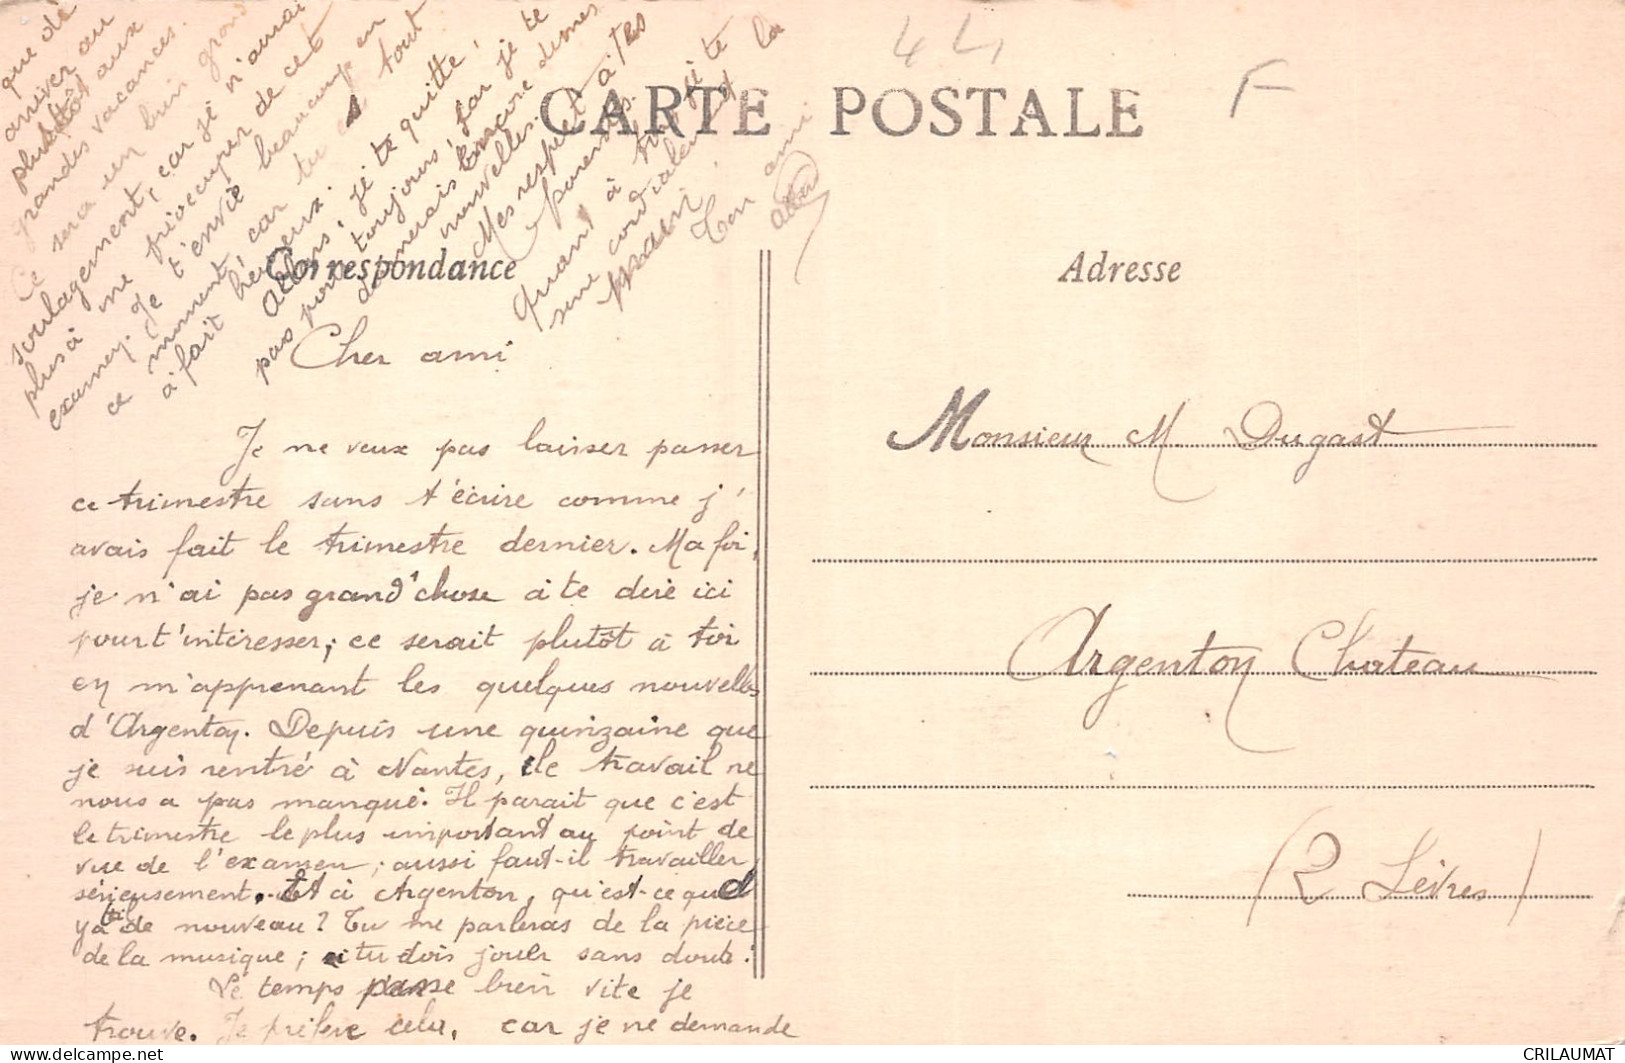 44
F
CARTE POSTALE
Correspondance
Adresse
Cher ami
Je ne veux pas laisser passer
ce trimestre sans t'écrire comme j'
avais fait le trimestre dernier. Ma foi,
je n'ai pas grand'chose à te dire ici
pour t'intéresser; ce serait plutôt à toi
en m'apprenant les quelques nouvelles
d'Argenton. Depuis une quinzaine que
je suis rentré à Nantes, le travail ne
nous a pas manqué. Il parait que c'est
le trimestre le plus important au point de
vue de l'examen; aussi faut-il travailler
sérieusement. Et à Argenton, qu'est-ce qu'
y a-t-il de nouveau? Tu me parleras de la pièce
de la musique; tu dois jouer sans doute.
Le temps passe bien vite je
trouve. Je préfère cela, car je ne demande
que d'
arriver au
plutôt aux
grandes vacances.
Ce sera un bien grand
soulagement, car je n'aurai
plus à me préoccuper de cet
examen. Je t'envie beaucoup en
ce moment car tu es tout
à fait heureux.
Allons, je te quitte,
pas pour toujours! car je te
donnerais encore de mes
nouvelles.
Mes respects à tes
parents.
Quant à toi, je te la
serre cordialement
Ton ami
Monsieur M. Dugast
Argenton Chateau
(2 Sèvres)
CRILAUMAT